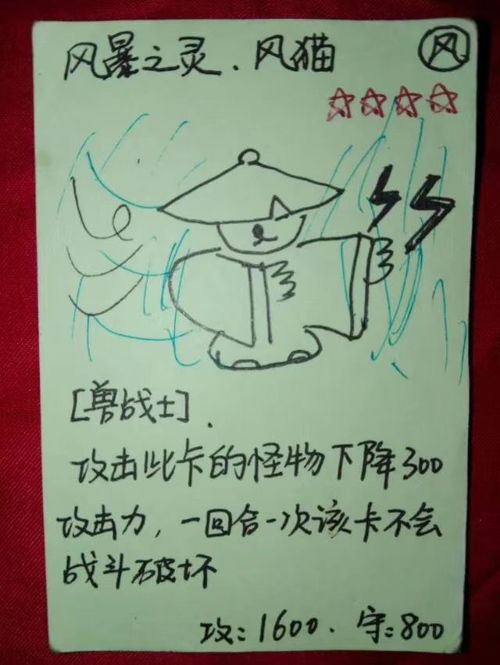 风暴之灵、风猫 风
[兽战士].
攻击此卡的怪物下降300
攻击力，一回合一次该卡不会
战斗破坏
攻：1600. 守：800